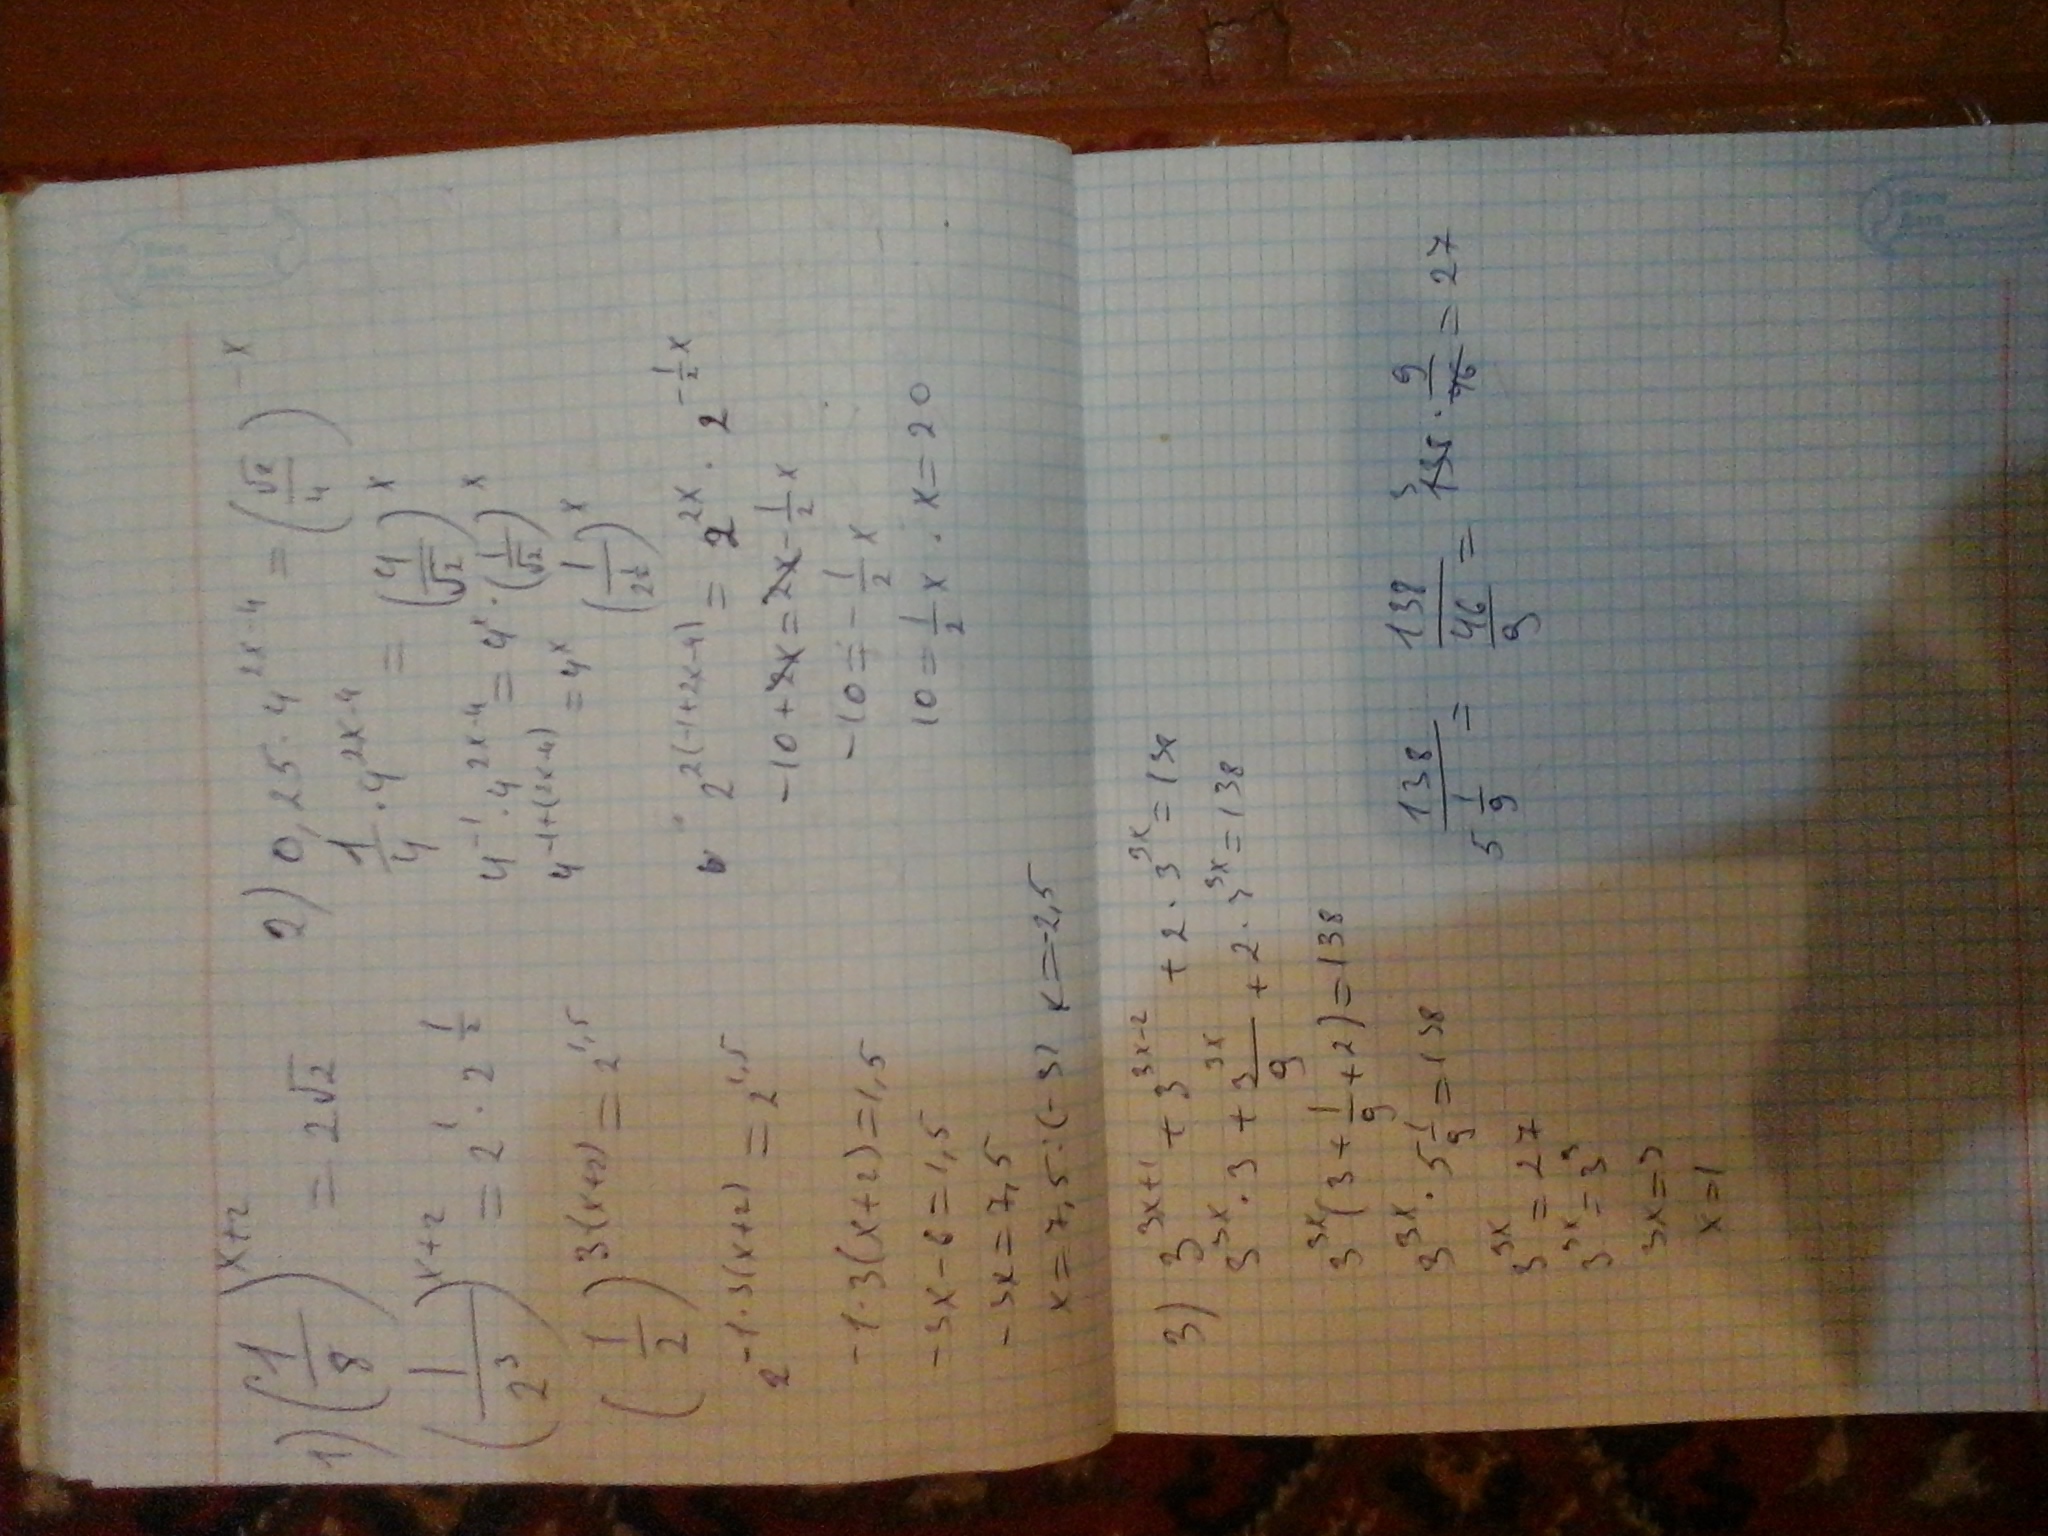 1) (1/8)^(x+2) = 2√2
(1/2³)^(x+2) = 2¹ · 2^(1/2)
(1/2)^(3(x+2)) = 2^(1,5)
2^(-1·3(x+2)) = 2^(1,5)
-1·3(x+2)=1,5
-3x-6=1,5
-3x=7,5
x=7,5:(-3) x=-2,5
2) 0,25·4^(2x-4) = (√2/4)^(-x)
1/4·4^(2x-4) = (4/√2)^x
4^(-1)·4^(2x-4) = 4^x·(1/√2)^x
4^(-1+(2x-4)) = 4^x (1/2^(1/2))^x
2^(2(-1+2x-4)) = 2^(2x)·2^(-1/2x)
-10+2x=2x-1/2x
-10=-1/2x
10=1/2x · x=20
3) 3^(3x+1) + 3^(3x-2) + 2·3^(3x) = 138
3^(3x)·3 + 3^(3x)/9 + 2·3^(3x) = 138
3^(3x)(3+1/9+2)=138
3^(3x)·5 1/9=138
3^(3x)=27
3^(3x)=3³
3x=3
x=1
138/(5 1/9) = 138/(46/9) = 138·9/46 = 27